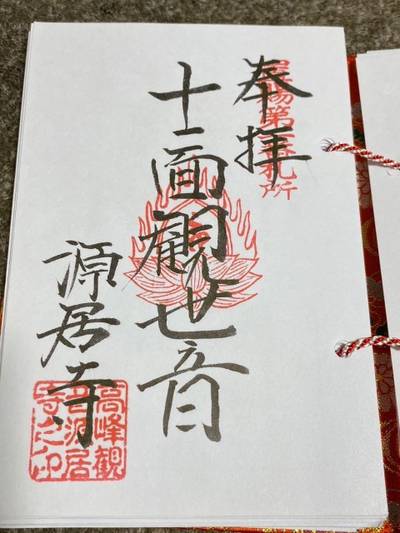 奉拝
場第 札所
十一面観世音
源居寺
高峰観
音源居
寺之印